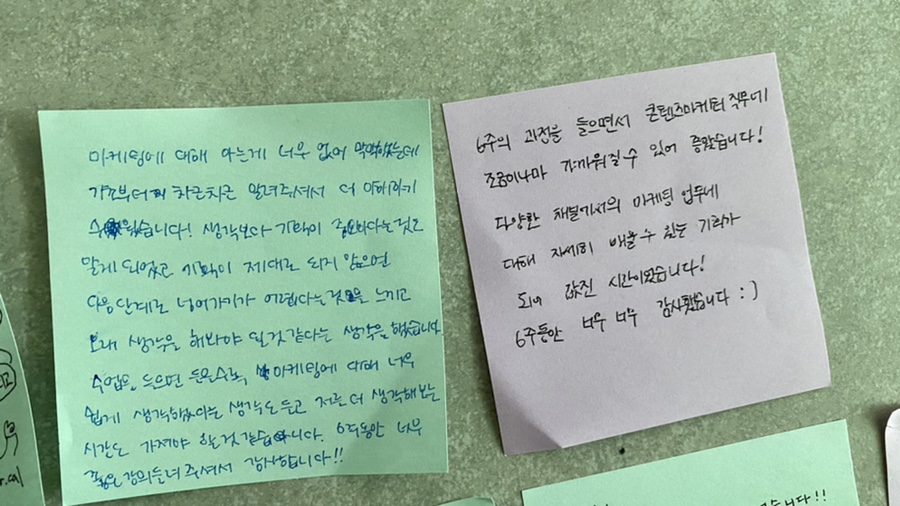 마케팅에 대해 아는게 너무 없어 막막했는데
기초부터 차근차근 알려주셔서 더 이해하기
수월했습니다! 생각보다 기획이 중요하다는것도
알게 되었고 기획이 제대로 되지 않으면
다음단계로 넘어가기가 어렵다는것을 느끼고
오래 생각을 해봐야 될것 같다는 생각을 했습니다
수업을 들으면 들을수록, 마케팅에 대해 너무
쉽게 생각했었다는 생각도 들고 저를 더 생각해보는
시간도 가져야 할것 같습니다. 6주동안 너무
좋은강의들려주셔서 감사합니다!!
6주의 과정을 들으면서 콘텐츠마케터 직무에
조금이나마 가까워질 수 있어 좋았습니다!
다양한 채널에서의 마케팅 업무에
대해 자세히 배울 수 있는 기회가
되어 값진 시간이었습니다!
6주동안 너무 너무 감사했습니다 :)
습니다!!